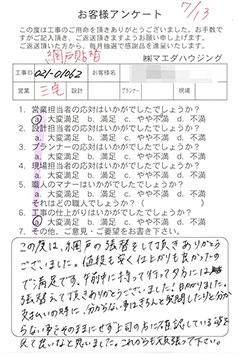 お客様アンケート
7/13
この度は工事のご用命を頂きありがとうございました。お手数で
すがご記入頂き、ご返送頂きますようお願い申し上げます。
ご返送頂いた方から、毎月抽選で感謝品を進呈いたします。
網戸貼替
㈱マエダハウジング
工事ID 021-01062 お客様名
営業 三宅 設計 プランナー 現場
1. 営業担当者の応対はいかがでしたでしょうか?
a. 大変満足 b. 満足 c. やや不満 d. 不満
2. 設計担当者の応対はいかがでしたでしょうか?
a. 大変満足 b. 満足 c. やや不満 d. 不満
3. プランナーの応対はいかがでしたでしょうか?
a. 大変満足 b. 満足 c. やや不満 d. 不満
4. 現場担当者の応対はいかがでしたでしょうか?
a. 大変満足 b. 満足 c. やや不満 d. 不満
5. 職人のマナーはいかがでしたでしょうか?
a. 大変満足 b. 満足 c. やや不満 d. 不満
それはどの職人でしょうか?( )
6. 工事の仕上がりはいかがでしたでしょうか?
a. 大変満足 b. 満足 c. やや不満 d. 不満
7. その他、ご意見・ご要望をお書き下さい。
この度は、網戸の張替をして頂きありがとう
ございました。値段も安く仕上がりも良かったの
で満足です。午前中に持って行って夕方には
張替えて頂きありがとうございました!助かりました。
支払いの時に、分からない事はきちんと質問したりと分か
らない事をそのままにせず上司の方に確認している姿を
見て良いなと思いました。これからも頑張って下さい。